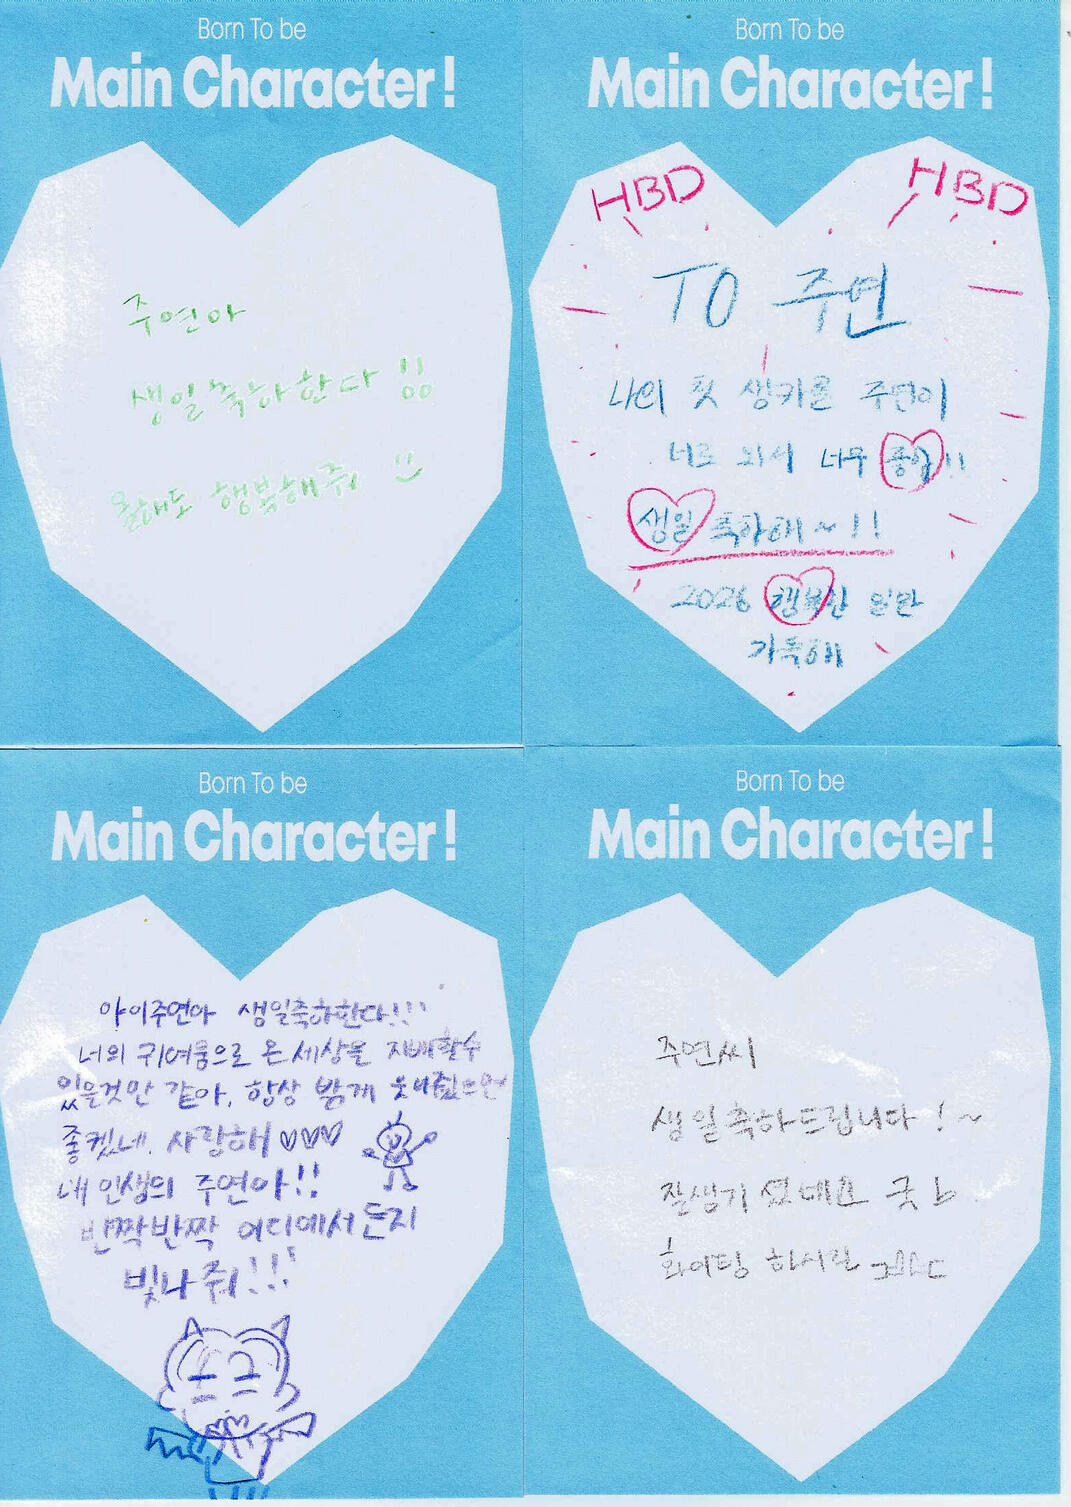 Born To be
Main Character!
주연아
생일축하한다!!
올해도 행복해줘
Born To be
Main Character!
HBD
HBD
TO 주연
나의 첫 생카를 주연이
너로 와서 너무 좋아!!
생일 축하해~!!
2026 행복한 일만
가득해
Born To be
Main Character!
아이주연아 생일축하한다!!!
너의 귀여움으로 온세상을 지배할수
있을것만 같아. 항상 밝게 웃어줬으면
좋겠네. 사랑해♡♡♡
내 인생의 주연아!!
반짝반짝 어디에서든지
빛나줘!!!
Born To be
Main Character!
주연씨
생일축하드립니다!~
잘생기셨네요 굿b
화이팅 하시란